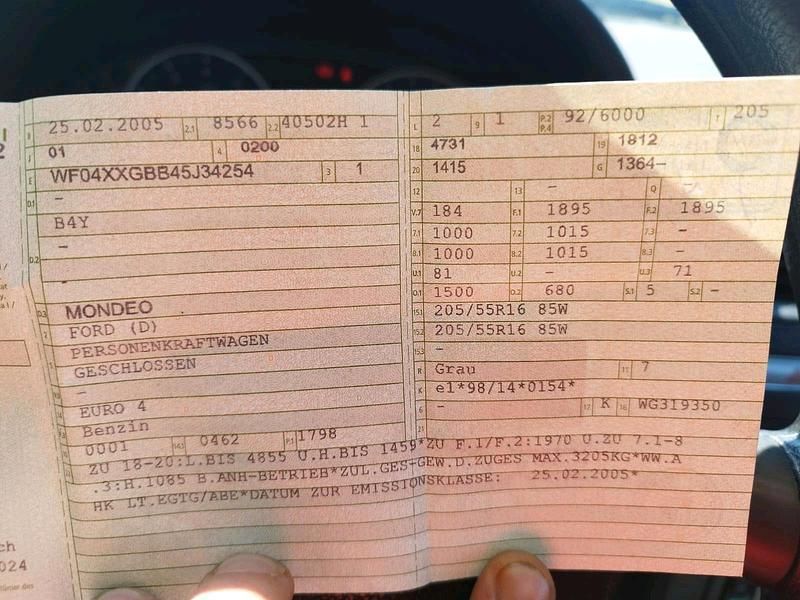 B 25.02.2005 2.1 8566 2.2 40502H 1
J 01 4 0200
E WF04XXGBB45J34254 3 1
D.1 -
B4Y
D.2 -
-
D.3 MONDEO
FORD (D)
PERSONENKRAFTWAGEN
GESCHLOSSEN
-
EURO 4
Benzin
0001 0462 P.1 1798
L 2 9 1 P.2 P.4 92/6000 T 205
18 4731 19 1812
20 1415 G 1364-
12 - 13 - Q -
V.7 184 F.1 1895 F.2 1895
7.1 1000 7.2 1015 7.3 -
8.1 1000 8.2 1015 8.3 -
U.1 81 U.2 - U.3 71
O.1 1500 O.2 680 S.1 5 S.2 -
15.1 205/55R16 85W
15.2 205/55R16 85W
15.3 -
R Grau 11 7
K e1*98/14*0154*
6 - 17 K 16 WG319350
21
ZU 18-20:L.BIS 4855 U.H.BIS 1459*ZU F.1/F.2:1970 U.ZU 7.1-8
.3:H.1085 B.ANH-BETRIEB*ZUL.GES-GEW.D.ZUGES MAX.3205KG*WW.A
HK LT.EGTG/ABE*DATUM ZUR EMISSIONSKLASSE: 25.02.2005*
ch
024